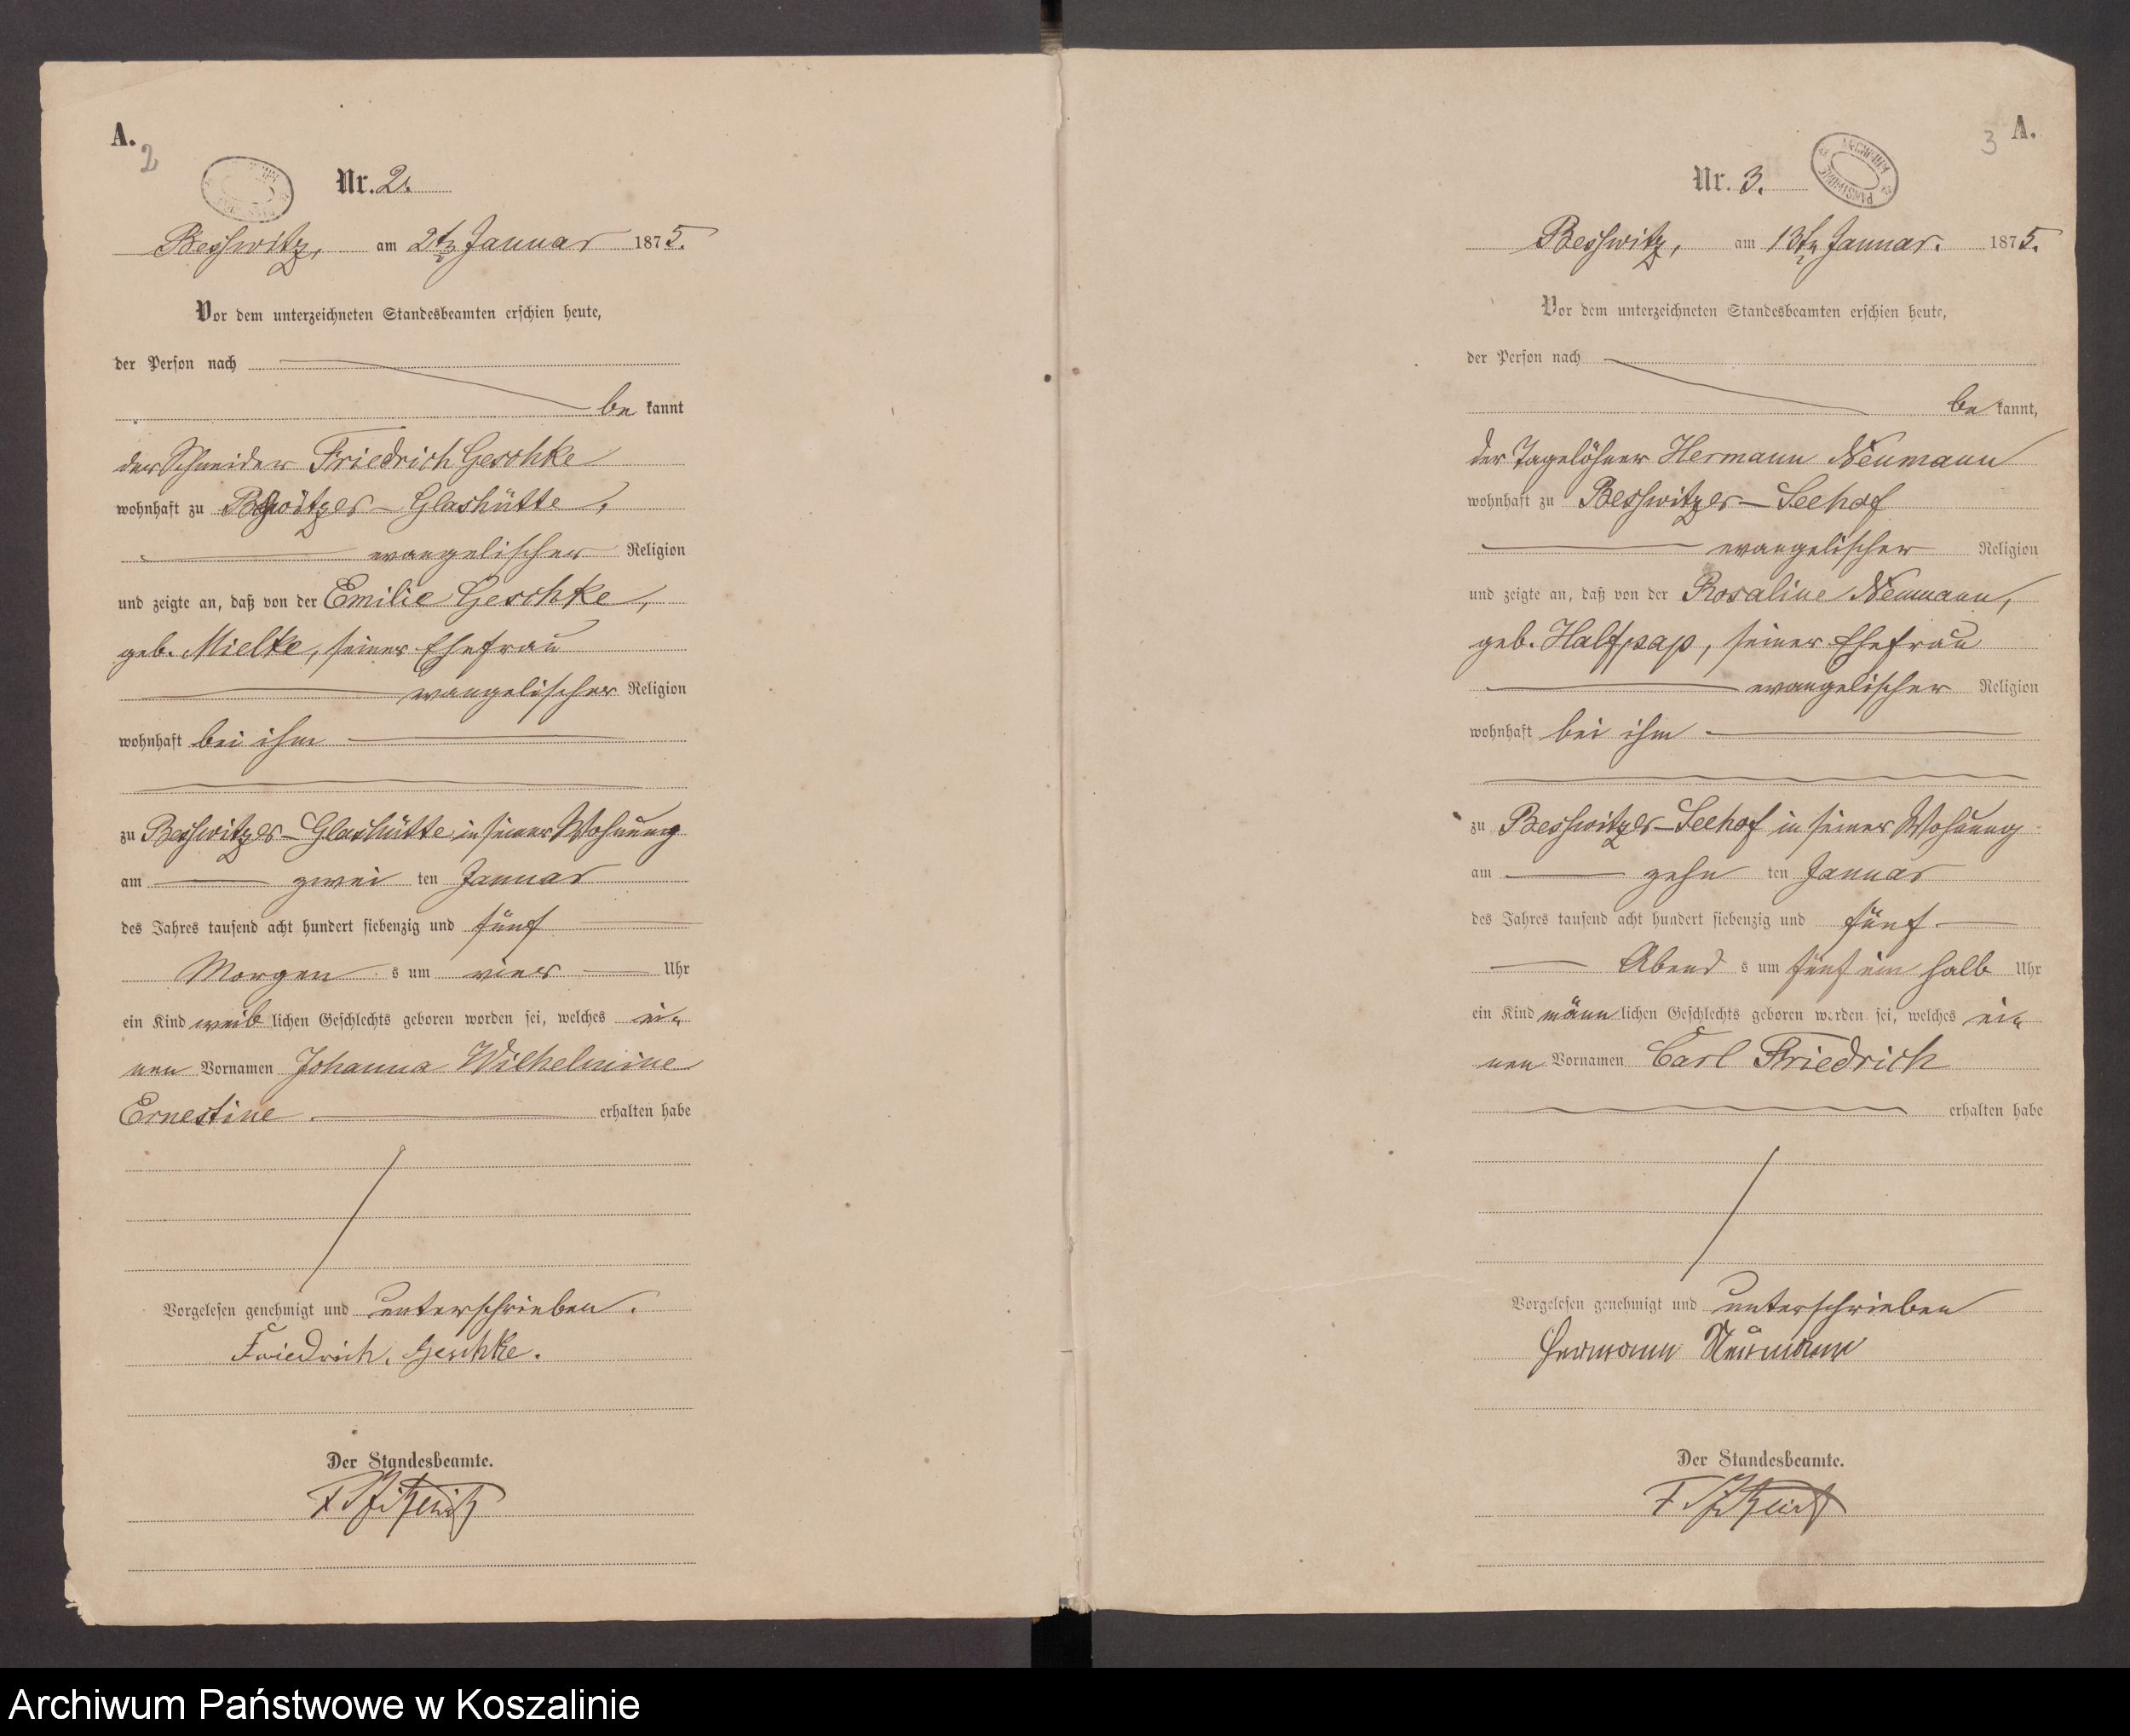 A.
2
Nr. 2.
Besswitz, am 2ten Januar 1875.
Vor dem unterzeichneten Standesbeamten erschien heute,
der Person nach
be kannt
der Schneider Friedrich Geschke
wohnhaft zu Besswitzer-Glashütte,
evangelischer Religion
und zeigte an, daß von der Emilie Geschke,
geb. Mielke, seiner Ehefrau
evangelischer Religion
wohnhaft bei ihm
zu Besswitzer-Glashütte in seiner Wohnung
am zwei ten Januar
des Jahres tausend acht hundert siebenzig und fünf
Morgen s um vier Uhr
ein Kind weib lichen Geschlechts geboren worden sei, welches ei-
nen Vornamen Johanna Wilhelmine
Ernestine. erhalten habe
Vorgelesen genehmigt und unterschrieben.
Friedrich. Geschke.
Der Standesbeamte.
3
A.
ARCHIWUM PAŃSTWOWE
Nr. 3.
Besswitz, am 13ten Januar. 1875.
Vor dem unterzeichneten Standesbeamten erschien heute,
der Person nach
be kannt,
der Tagelöhner Hermann Neumann
wohnhaft zu Besswitzer-Seehof
evangelischer Religion
und zeigte an, daß von der Rosaline Neumann,
geb. Halfpap, seiner Ehefrau
evangelischer Religion
wohnhaft bei ihm
zu Besswitzer-Seehof in seiner Wohnung
am zehn ten Januar
des Jahres tausend acht hundert siebenzig und fünf
Abend s um fünf ein halb Uhr
ein Kind männ lichen Geschlechts geboren worden sei, welches ei-
nen Vornamen Carl Friedrich
erhalten habe
Vorgelesen genehmigt und unterschrieben
Hermann Neumann
Der Standesbeamte.
Archiwum Państwowe w Koszalinie